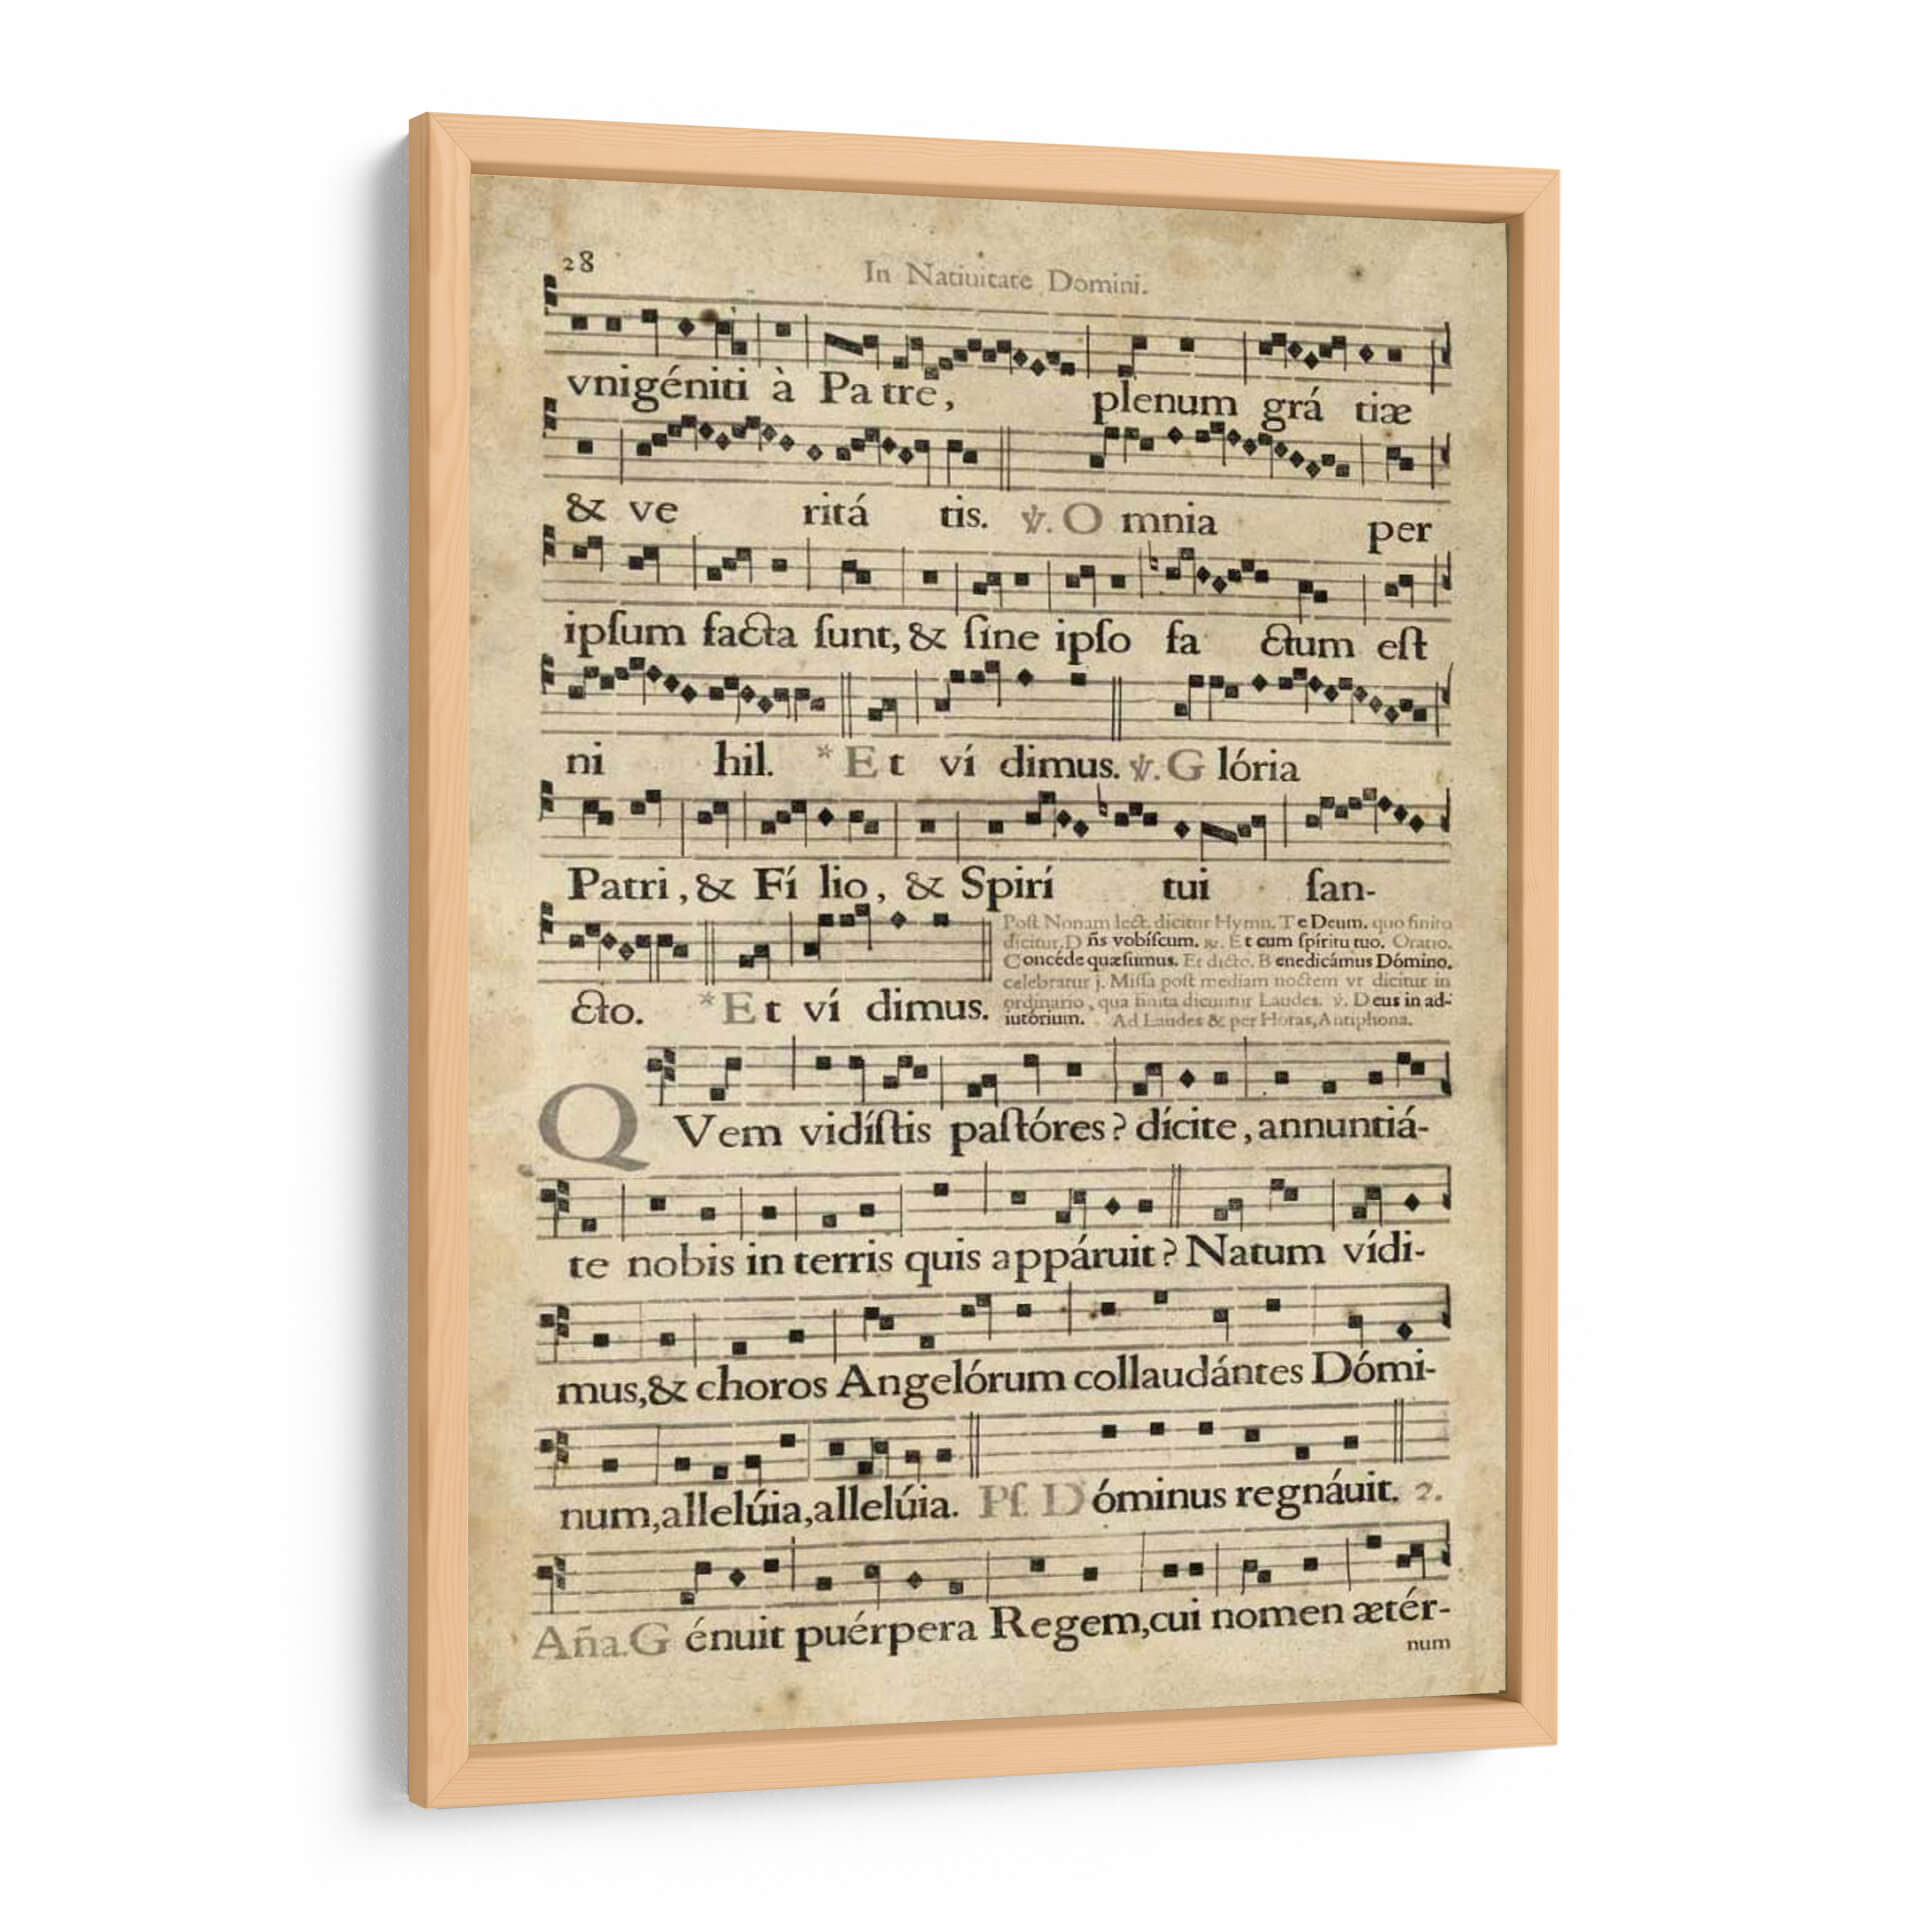 28 In Natiuitate Domini.
vnigéniti à Pa tre, plenum grá tiæ
& ve ritá tis. ℣. O mnia per
ipſum facta ſunt, & ſine ipſo fa ctum eſt
ni hil. * Et ví dimus. ℣. G lória
Patri, & Fí lio, & Spirí tui ſan-
cto. * Et ví dimus.
Poſt Nonam lect. dicitur Hymn. Te Deum. quo finito
dicitur. D ñs vobíſcum. ℟. Et cum ſpíritu tuo. Oratio.
Concéde quæſumus. Et dicto. B enedicámus Dómino.
celebratur j. Miſſa poſt mediam noctem vt dicitur in
ordinario, qua finita dicuntur Laudes. ℣. Deus in ad-
iutórium. Ad Laudes & per Horas, Antiphona.
QVem vidíſtis paſtóres? dícite, annuntiá-
te nobis in terris quis appáruit? Natum vídi-
mus, & choros Angelórum collaudántes Dómi-
num, allelúia, allelúia. Pſ. Dóminus regnáuit. 2.
Aña. Génuit puérpera Regem, cui nomen ætér-
num